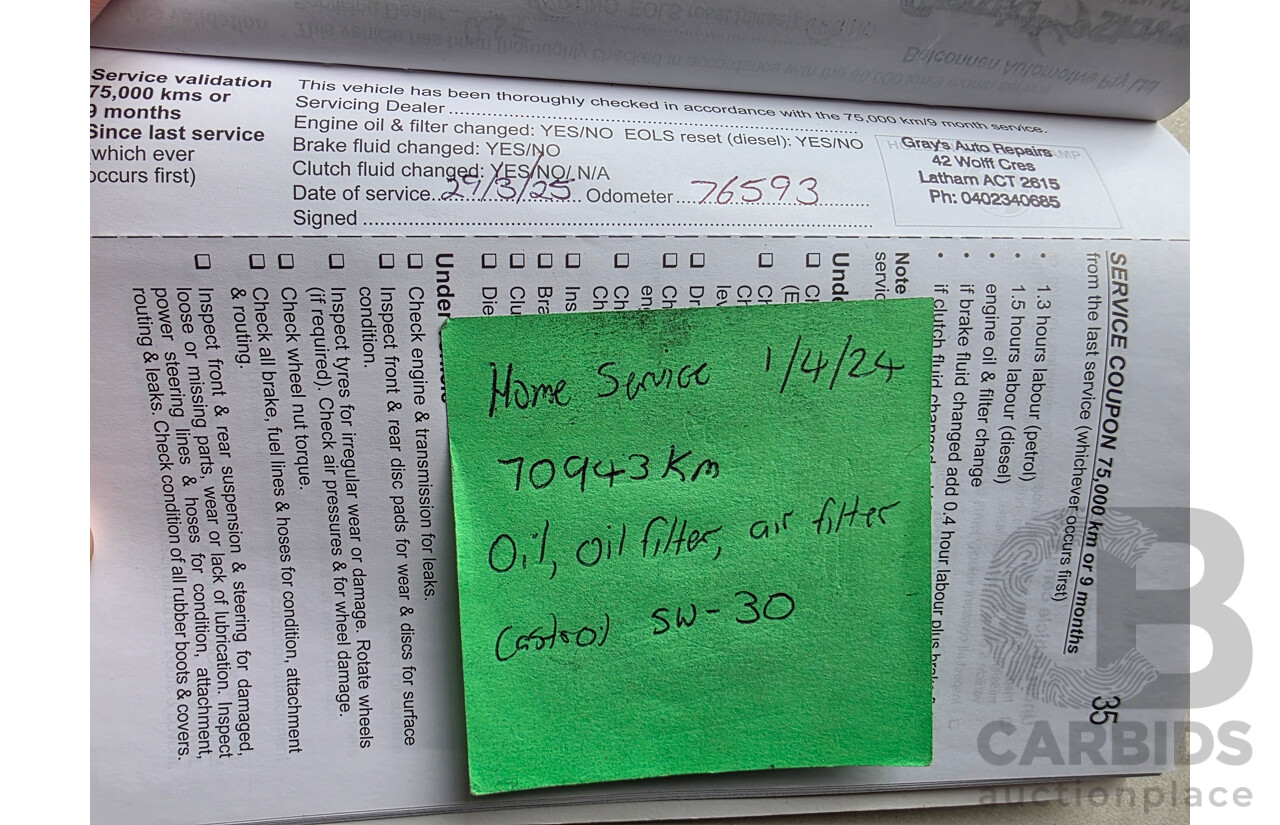 Service validation
75,000 kms or
9 months
Since last service
(which ever
occurs first)
This vehicle has been thoroughly checked in accordance with the 75,000 km/9 month service.
Servicing Dealer
Engine oil & filter changed: YES/NO EOLS reset (diesel): YES/NO
Brake fluid changed: YES/NO
Clutch fluid changed: YES/NO/ N/A
Date of service 29/3/25 Odometer 76593
Signed
Gray's Auto Repairs
42 Wolff Cres
Latham ACT 2615
Ph: 0402340685
SERVICE COUPON 75,000 km or 9 months
35
from the last service (whichever occurs first)
• 1.3 hours labour (petrol)
• 1.5 hours labour (diesel)
• engine oil & filter change
• if brake fluid changed add 0.4 hour labour plus
• if clutch fluid changed
Note
Under
Check engine & transmission for leaks.
Inspect front & rear disc pads for wear & discs for surface
condition.
Inspect tyres for irregular wear or damage. Rotate wheels
(if required). Check air pressures & for wheel damage.
Check wheel nut torque.
Check all brake, fuel lines & hoses for condition, attachment
& routing.
Inspect front & rear suspension & steering for damaged,
loose or missing parts, wear or lack of lubrication. Inspect
power steering lines & hoses for condition, attachment,
routing & leaks. Check condition of all rubber boots & covers.
Home Service 1/4/24
70943 Km
Oil, oil filter, air filter
Castrol 5W-30
CARBIDS
auctionplace